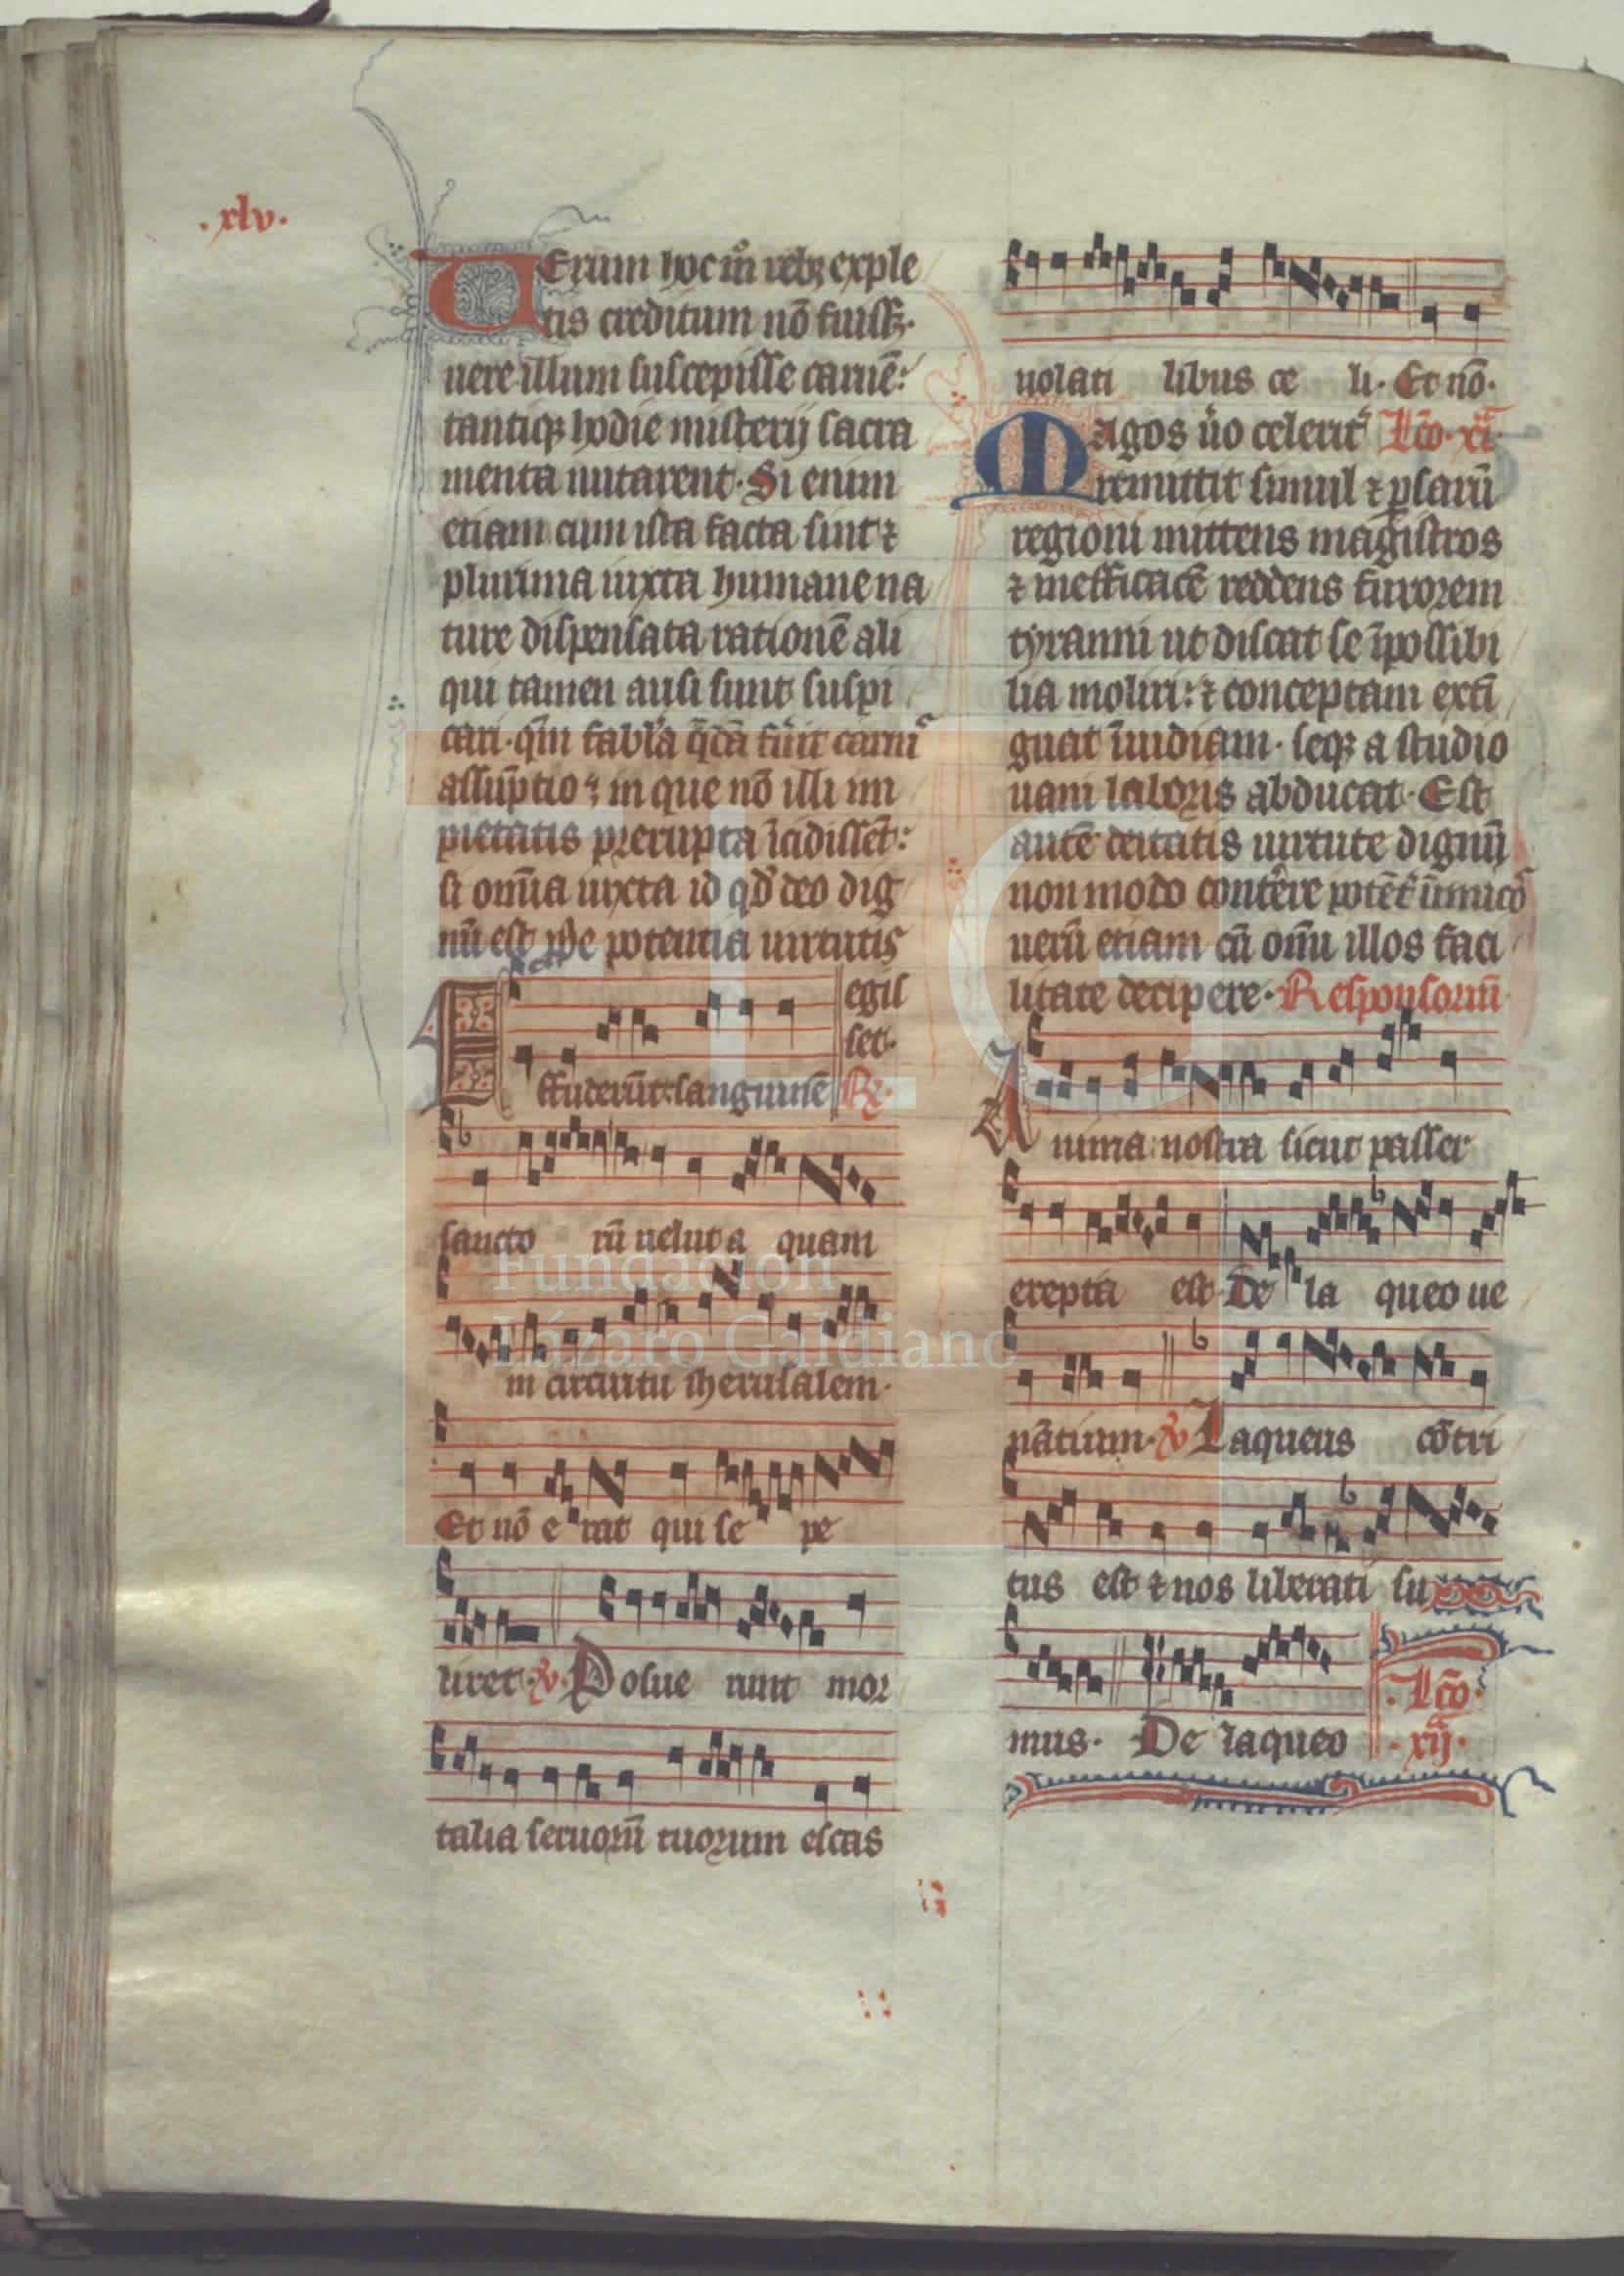 .xlv.
Uerum hoc mͦ rebꝫ exple
tis creditum nō fuissꝫ.
uere illum suscepisse carnē:
tantiqꝫ hodie misterij sacra
menta nutarent. Si enim
etiam cum ista facta sint ⁊
plurima iuxta humane na
ture dispensata rationē ali
qui tamen ausi sunt suspi
cari. qm̄ fabl̓a q̄dā fu̓it carni
assūptio: in que nō illi im
pietatis prerupta īcidissēt:
si om̄ia iuxta id qđ deo dig
nū est ꝓ potentia uirtutis
egis
set.
Effuderūt sanguinē ℟.
sancto rū uelut a quam
in circuitu iherusalem.
Et nō e rat qui se pe
liret. ℣. Posue runt mor
talia seruorū tuorum escas
uolati libus ce li. Et nō.
Magos ůo celerit̓ Lc̄o. xi.
remittit simul ⁊ ꝑsarū
regioni mittens magistros
⁊ inefficacē reddens furorem
tyranni ut discat se īpossibi
lia moliri: ⁊ conceptam exti
guat īuidiam. seqꝫ a studio
uani laboris abducat. Est
autē deitatis uirtute dignū
non modo conte̓re potēt̓ inimicos
uerū etiam cū om̄i illos faci
litate decipere. Responsoriū
Anima nostra sicut passer
erepta est De la queo ue
nātium. ℣ Laqueus cōtri
tus est ⁊ nos liberati su
mus. De laqueo
.Lc̄o.
.xij.
FLG
Fundación
Lázaro Galdiano